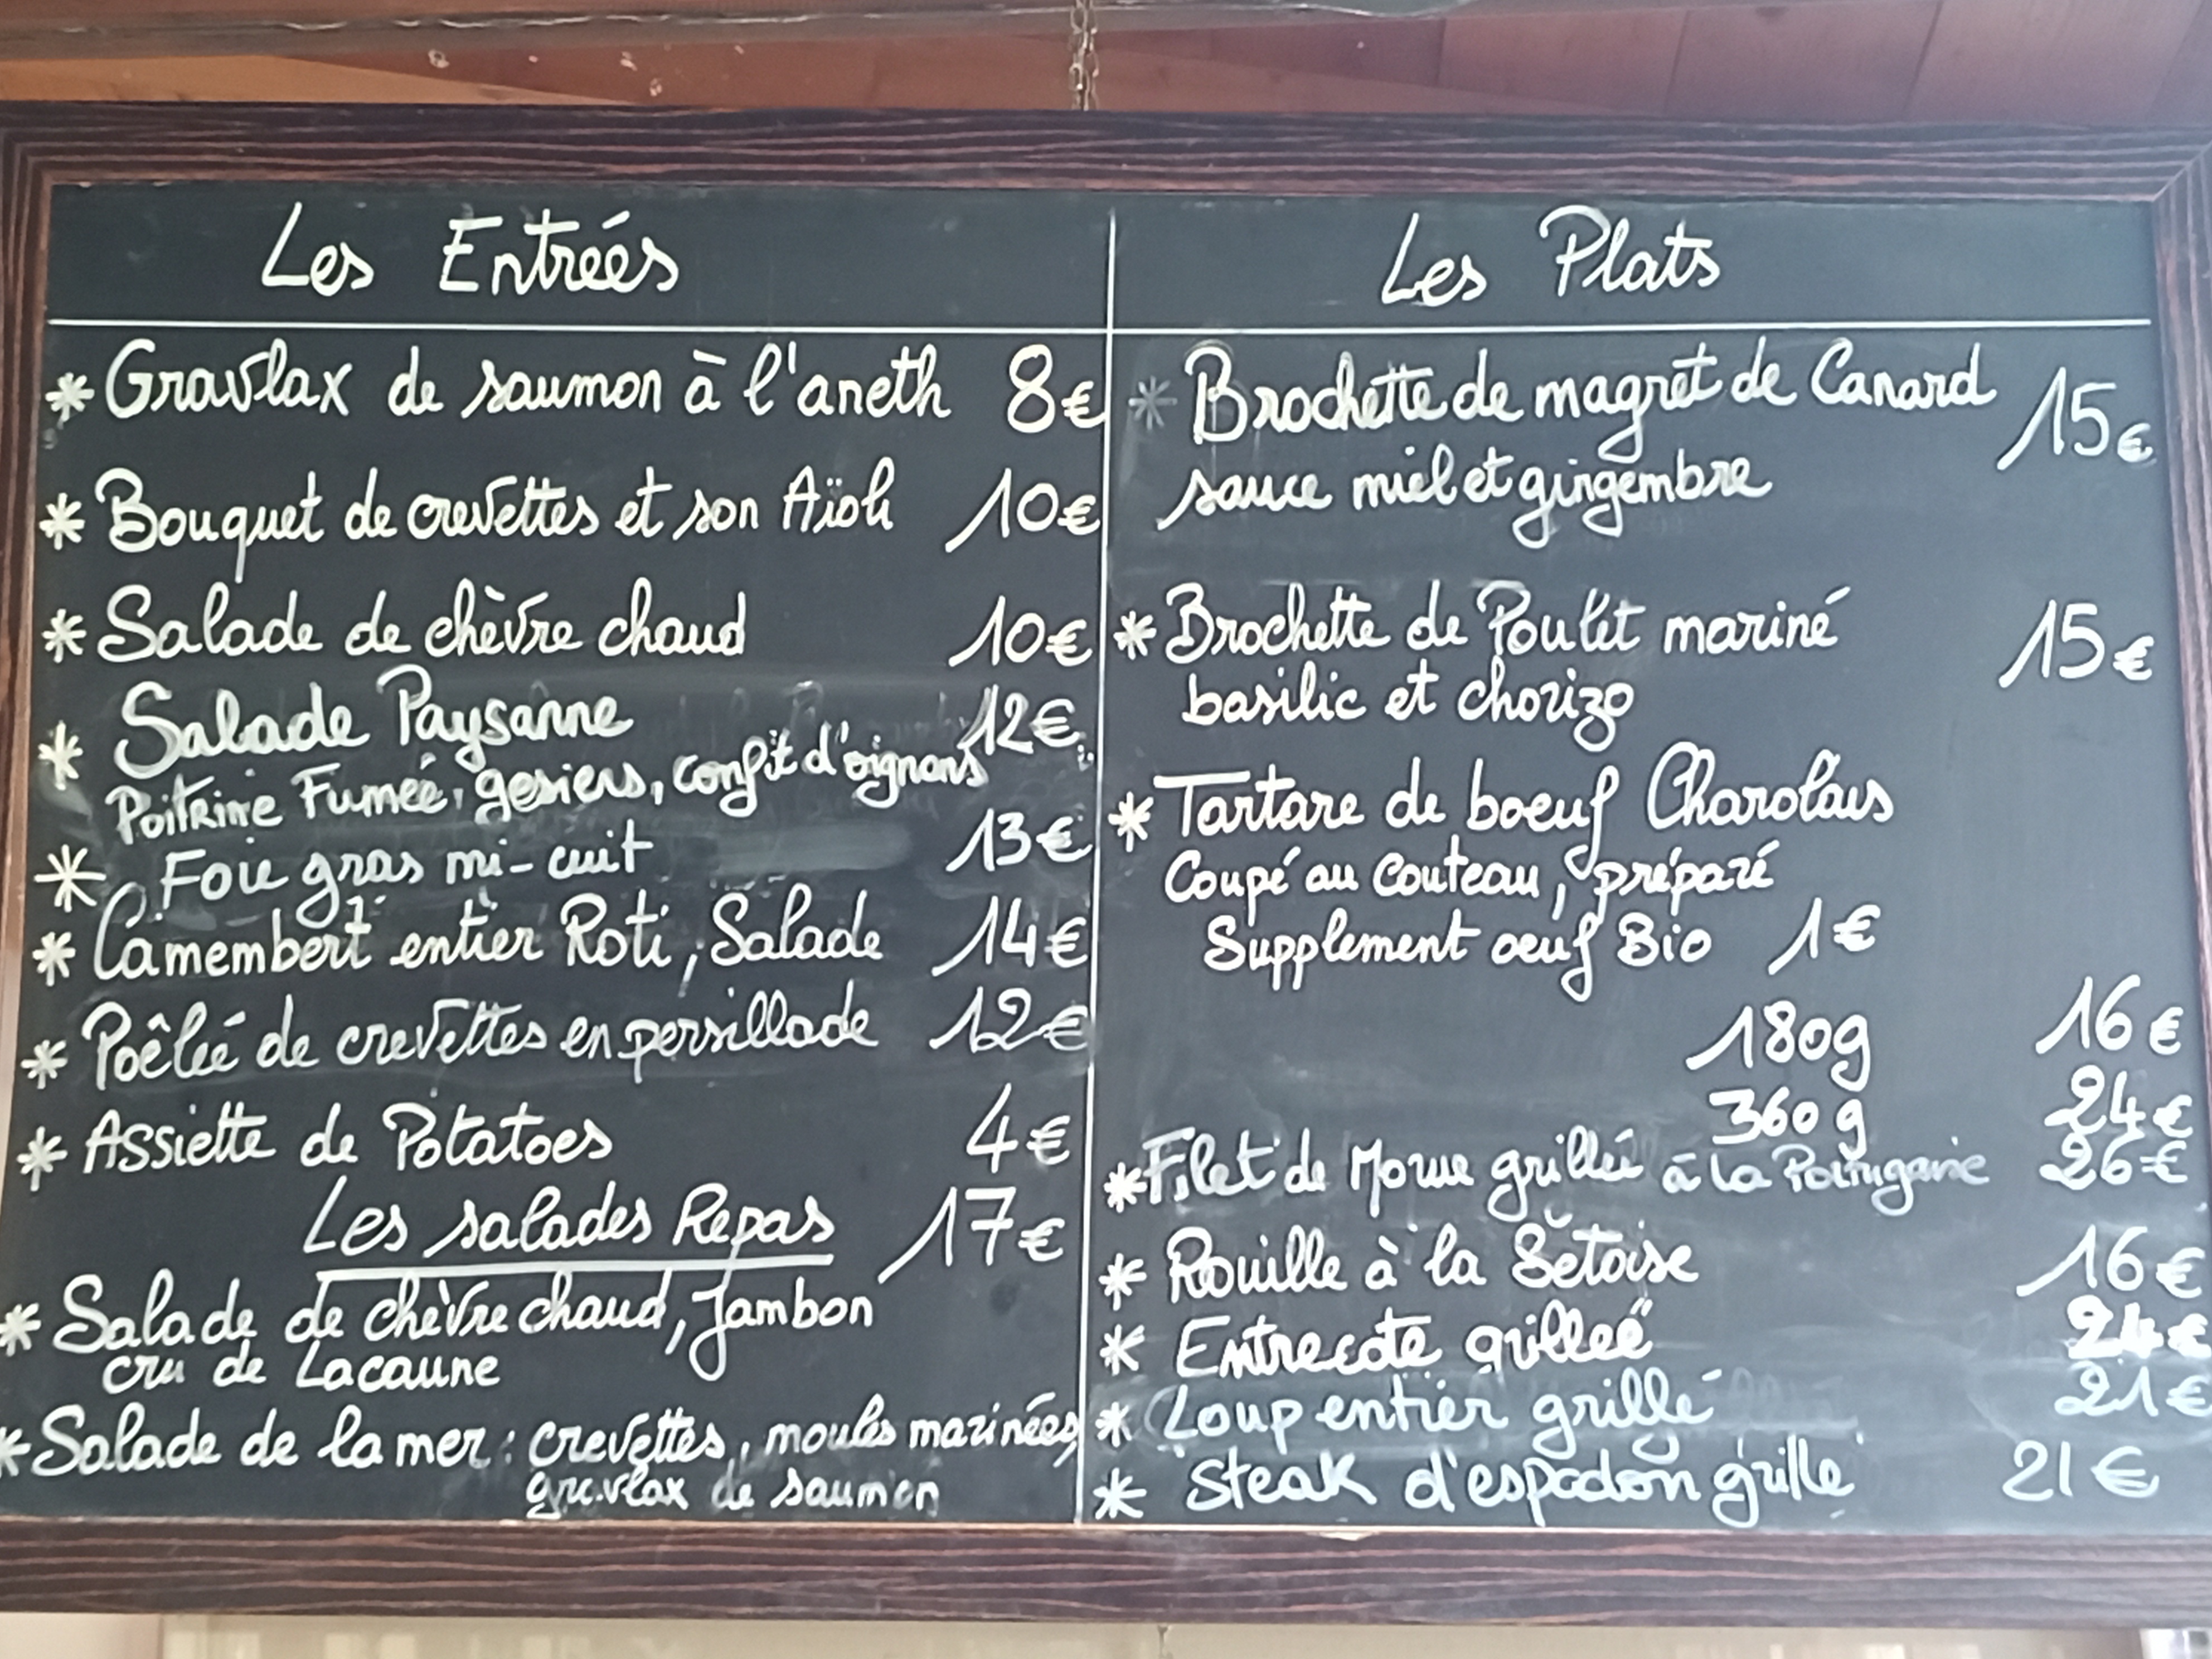 Les Entreés
* Gravlax de saumon à l'aneth 8€
* Bouquet de crevettes et son Aïoli 10€
* Salade de chèvre chaud 10€
* Salade Paysanne 12€
Poitrine Fumeé, gesiers, confit d'oignons
* Foie gras mi-cuit 13€
* Camembert entier Roti, Salade 14€
* Poêleé de crevettes en persillade 12€
* Assiette de Potatoes 4€
Les salades Repas 17€
* Salade de chèvre chaud, Jambon
cru de Lacaune
* Salade de la mer : crevettes, moules marinées,
gravlax de saumon
Les Plats
* Brochette de magret de Canard 15€
sauce miel et gingembre
* Brochette de Poulet mariné 15€
basilic et chorizo
* Tartare de boeuf Charolais
Coupé au Couteau, préparé
Supplement oeuf Bio 1€
180g 16€
360g 24€
* Filet de Morue grilleé à la Portugaise 26€
* Rouille à la Sètoise 16€
* Entrecote grilleé 24€
* Loup entier grillé 21€
* Steak d'espadon grillé 21€